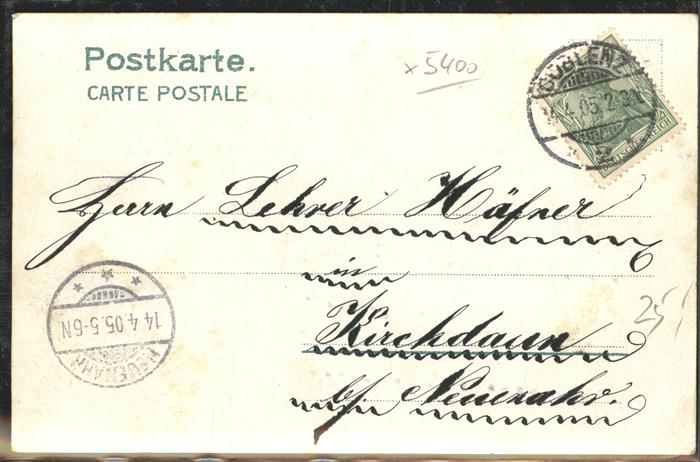 Postkarte.
CARTE POSTALE
x 5400
COBLENZ
4.05.2-3N
DEUTSCHES REICH
Herrn Lehrer Häfner
in
Kirchdaun
b/ Neuenahr.
14.4.05.5-6N
NEUENAHR
25